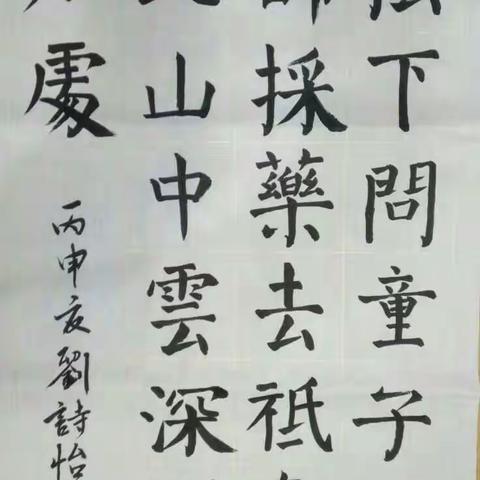 松下問童子
師採藥去祗
山中雲深
處
丙申夏劉詩怡